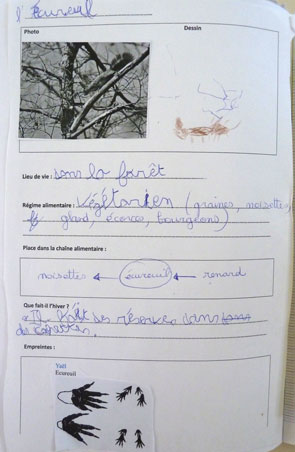 l'Ecureuil
Photo Dessin
Lieu de vie : dans la forêt
Régime alimentaire : Végétarien (graines, noisettes,
gland, écorces, bourgeons)
Place dans la chaîne alimentaire :
noisettes ← écureuil ← renard
Que fait-il l'hiver ?
Il fait des réserves dans
Empreintes :
Yaël
Ecureuil